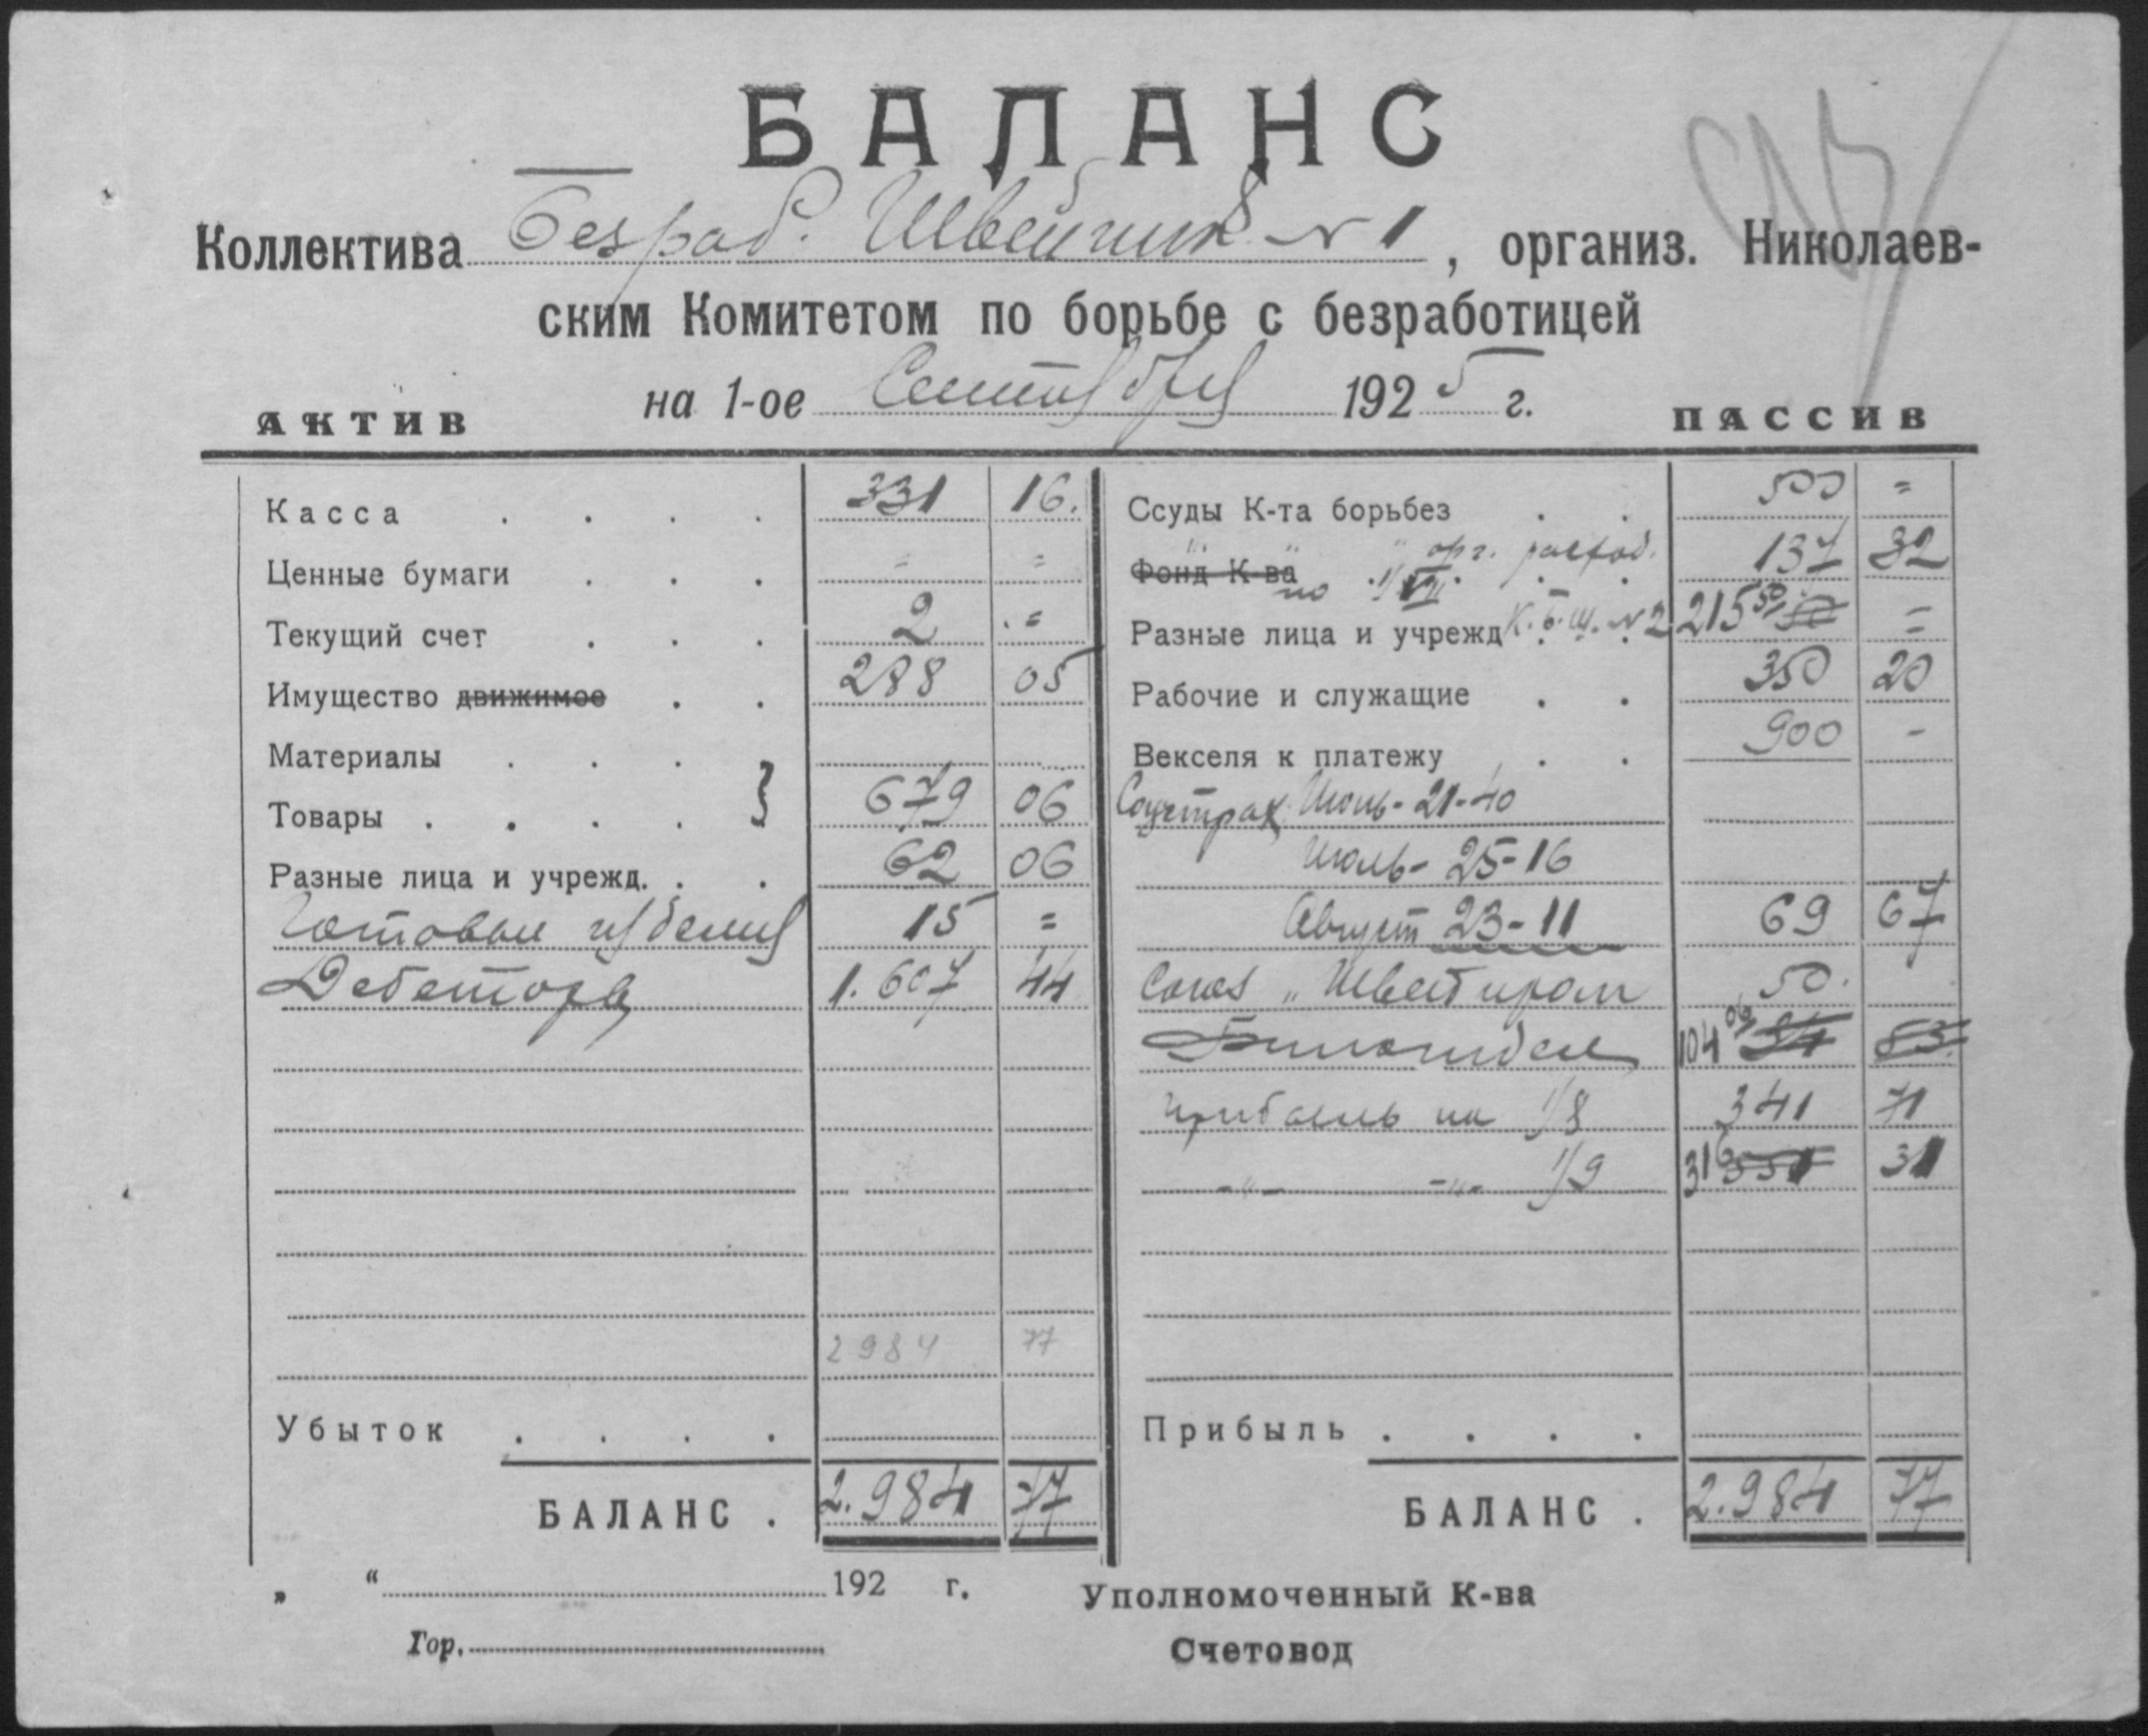 БАЛАНС
Коллектива безраб. Швейник № 1, организ. Николаев-
ским Комитетом по борьбе с безработицей
на 1-ое Сентября 1925 г.
АКТИВ
ПАССИВ
Касса . . . . 331 16.
Ценные бумаги . . . = =
Текущий счет . . . 2 =
Имущество движимое . . 288 05
Материалы . . .
Товары . . . . } 679 06
Разные лица и учрежд. . . 62 06
Готовые изделия 15 =
Дебеторы 1.607 44
2984 77
Убыток . . . .
БАЛАНС . 2.984 77
Ссуды К-та борьбез . . 500 =
Фонд К-ва " " " орг. расход. 137 32
по 1/VII
Разные лица и учрежд К.б.ш. № 2 215 50 =
Рабочие и служащие . . 350 20
Векселя к платежу . . 900 -
Соцстрах Июнь - 21-40
Июль - 25-16
Август 23-11 69 67
Союз „Швейпром 50.
104 06 34 53
прибыль на 1/8 341 71
-"- -"- 1/9 316 551 31
Прибыль . . . .
БАЛАНС . 2.984 77
„ “ 192 г.
Гор.
Уполномоченный К-ва
Счетовод